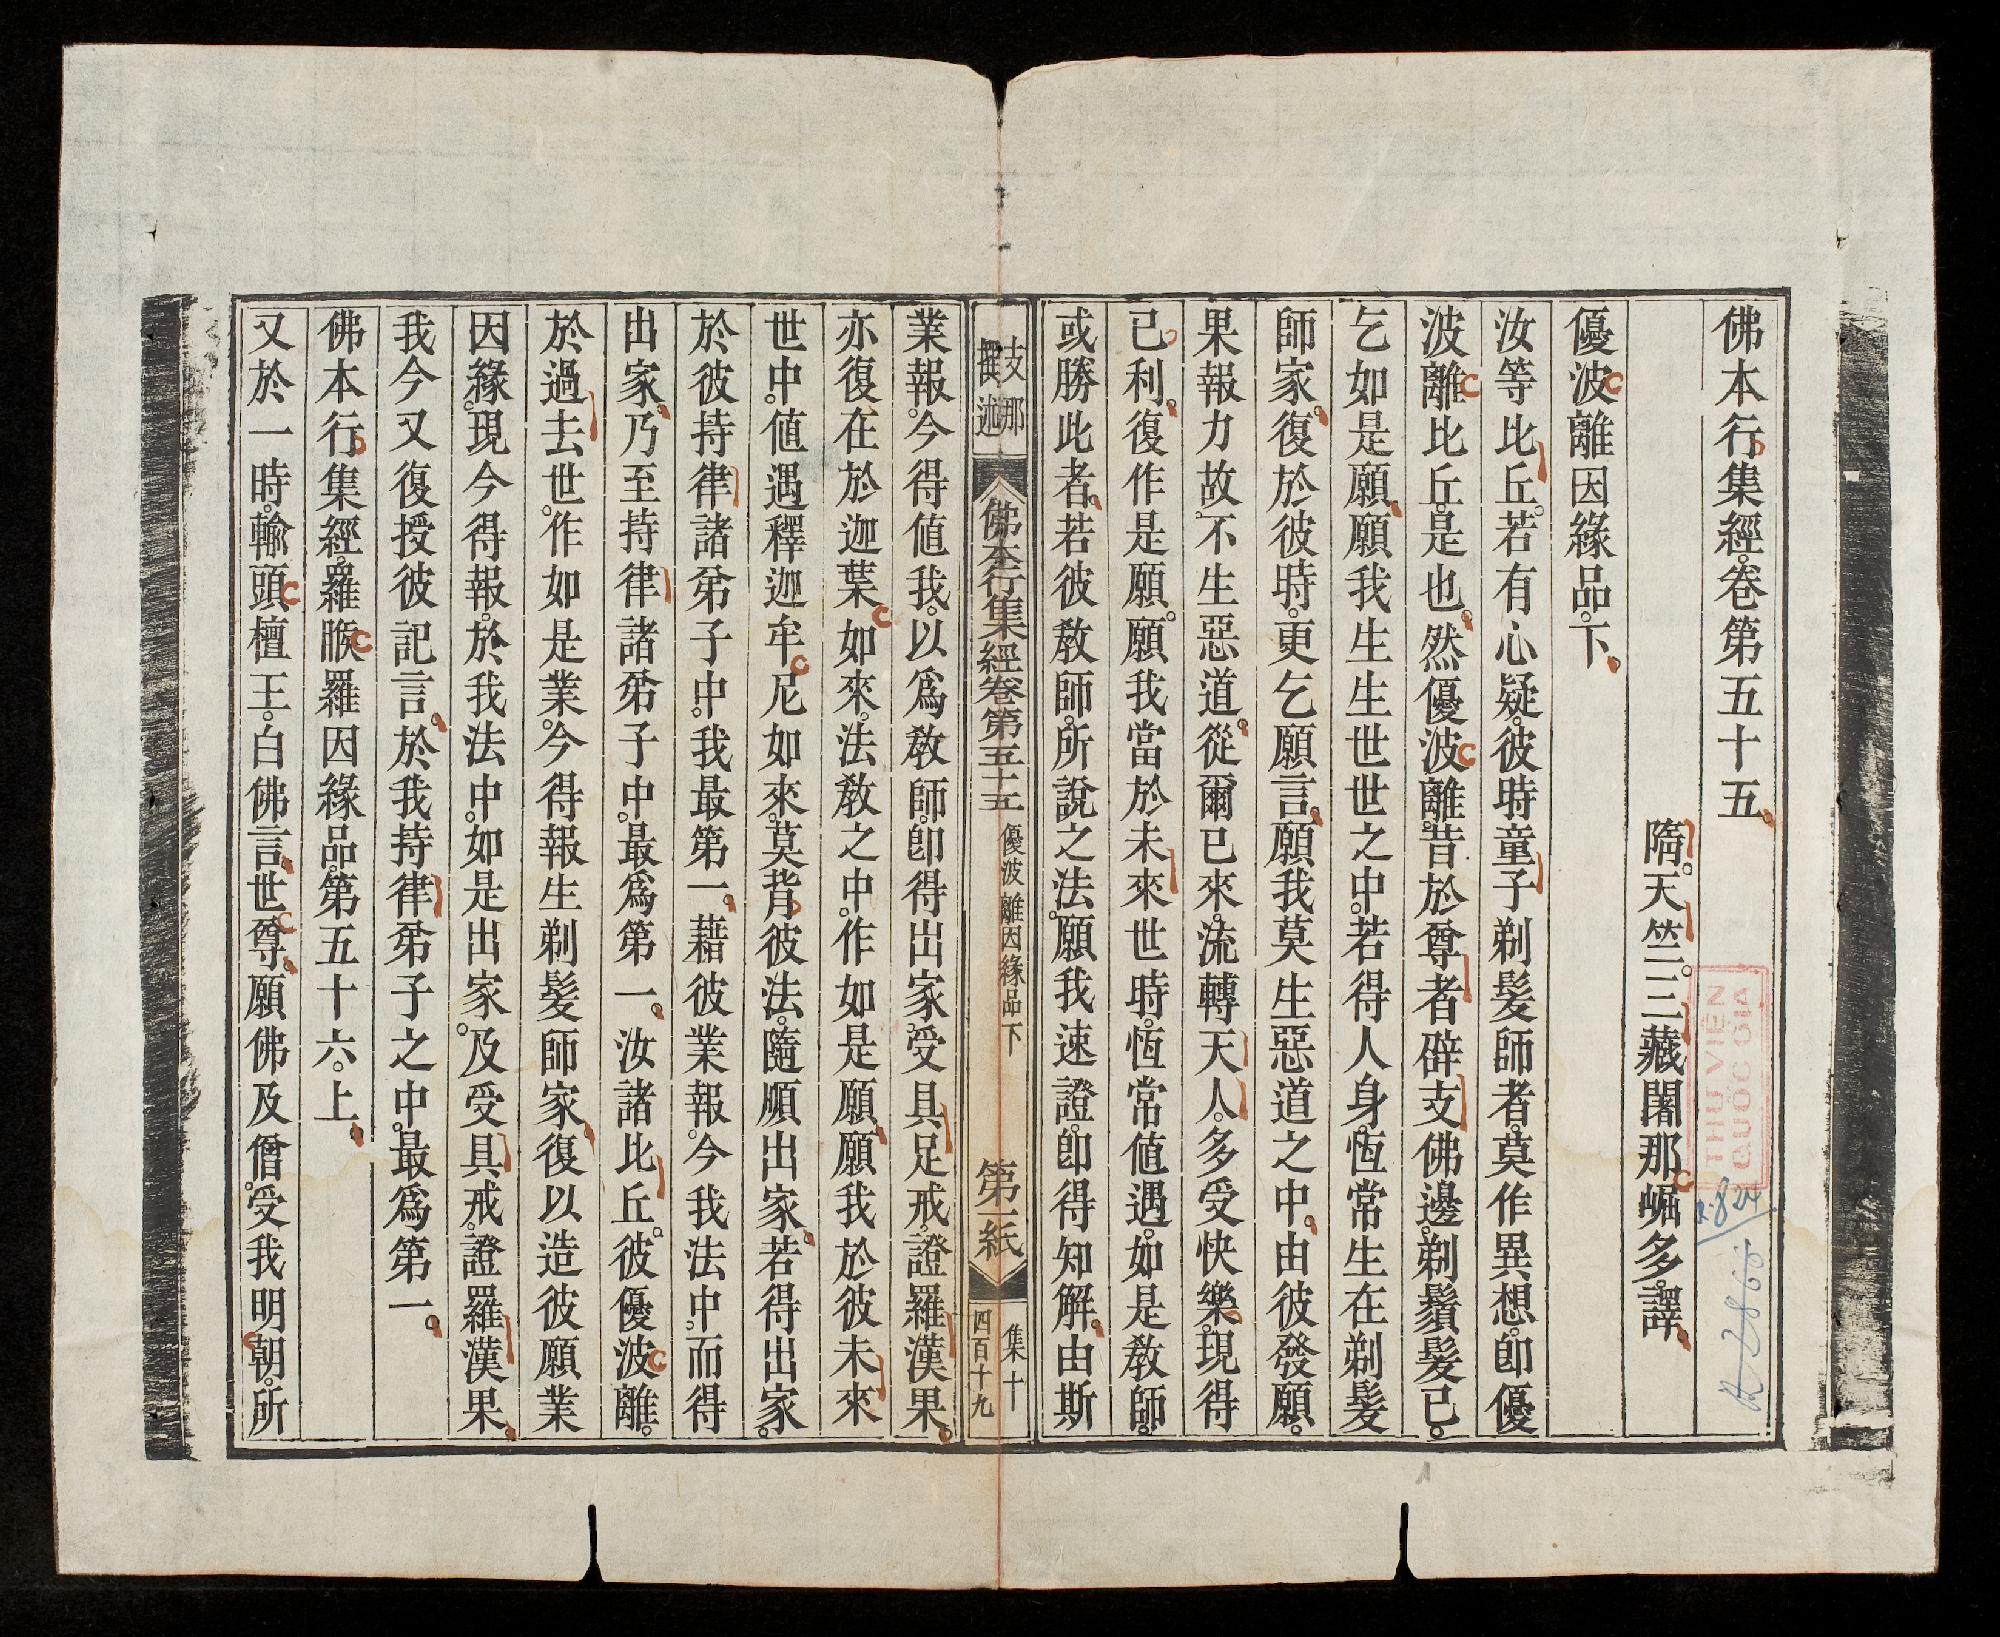 佛本行集經。卷第五十五。
隋。天竺。三藏闍那崛多。譯。
優波離因緣品。下。
汝等比丘。若有心疑。彼時童子剃髮師者。莫作異想。卽優
波離比丘。是也。然優波離。昔於尊者辟支佛邊。剃鬚髮已。
乞如是願。願我生生世世之中。若得人身。恆常生在剃髮
師家。復於彼時。更乞願言。願我莫生惡道之中。由彼發願。
果報力故。不生惡道。從爾已來。流轉天人。多受快樂。現得
己利。復作是願。願我當於未來世時。恆常値遇。如是教師。
或勝此者。若彼教師。所說之法。願我速證。卽得知解。由斯
支那
撰述
佛本行集經卷第五十五
優波離因緣品下
第一紙
集十
四百十九
業報。今得値我。以爲教師。卽得出家。受具足戒。證羅漢果。
亦復在於迦葉如來。法教之中。作如是願。願我於彼未來
世中。値遇釋迦牟尼如來。莫背彼法。隨順出家。若得出家。
於彼持律諸弟子中。我最第一。藉彼業報。今我法中。而得
出家。乃至持律諸弟子中。最爲第一。汝諸比丘。彼優波離。
於過去世。作如是業。今得報生剃髮師家。復以造彼願業
因緣。現今得報。於我法中。如是出家。及受具戒。證羅漢果。
我今又復授彼記言。於我持律弟子之中。最爲第一。
佛本行集經。羅睺羅因緣品。第五十六。上。
又於一時。輸頭檀王。白佛言。世尊。願佛及僧。受我明朝。所
THƯ VIỆN
QUỐC GIA